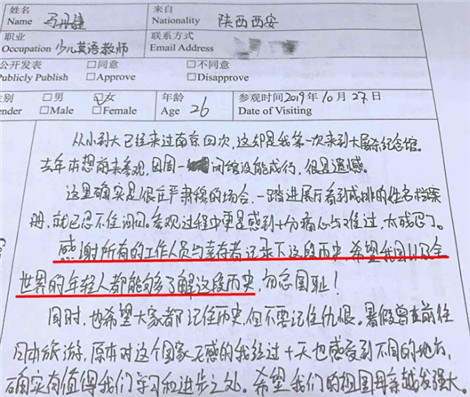 姓名 Name 来自 Nationality 陕西西安
职业 Occupation 少儿英语教师 联系方式 Email Address
公开发表 Publicly Publish □同意 □Approve □不同意 □Disapprove
性别 □男 □Male 女 □Female 年龄 Age 26 参观时间 2019年10月27日 Date of Visiting
从小到大已经来过南京四次,这却是我第一次来到大屠杀纪念馆。
去年本想前来参观,因周一闭馆没能成行,很是遗憾。
这里确实是很庄严肃穆的场合,一踏进展厅看到成排的姓名档案
册,就已忍不住泪目。参观过程中更是感到十分痛心与难过,太残忍了。
感谢所有的工作人员与幸存者记录下这段历史,希望我国以及全
世界的年轻人都能够了解这段历史,勿忘国耻!
同时,也希望大家都记住历史,但不要记住仇恨。暑假曾去前往
日本旅游,原本对这个国家无感的我经过十天也感受到不同的地方,
确实有值得我们学习和进步之处。希望我们的祖国母亲越发强大。